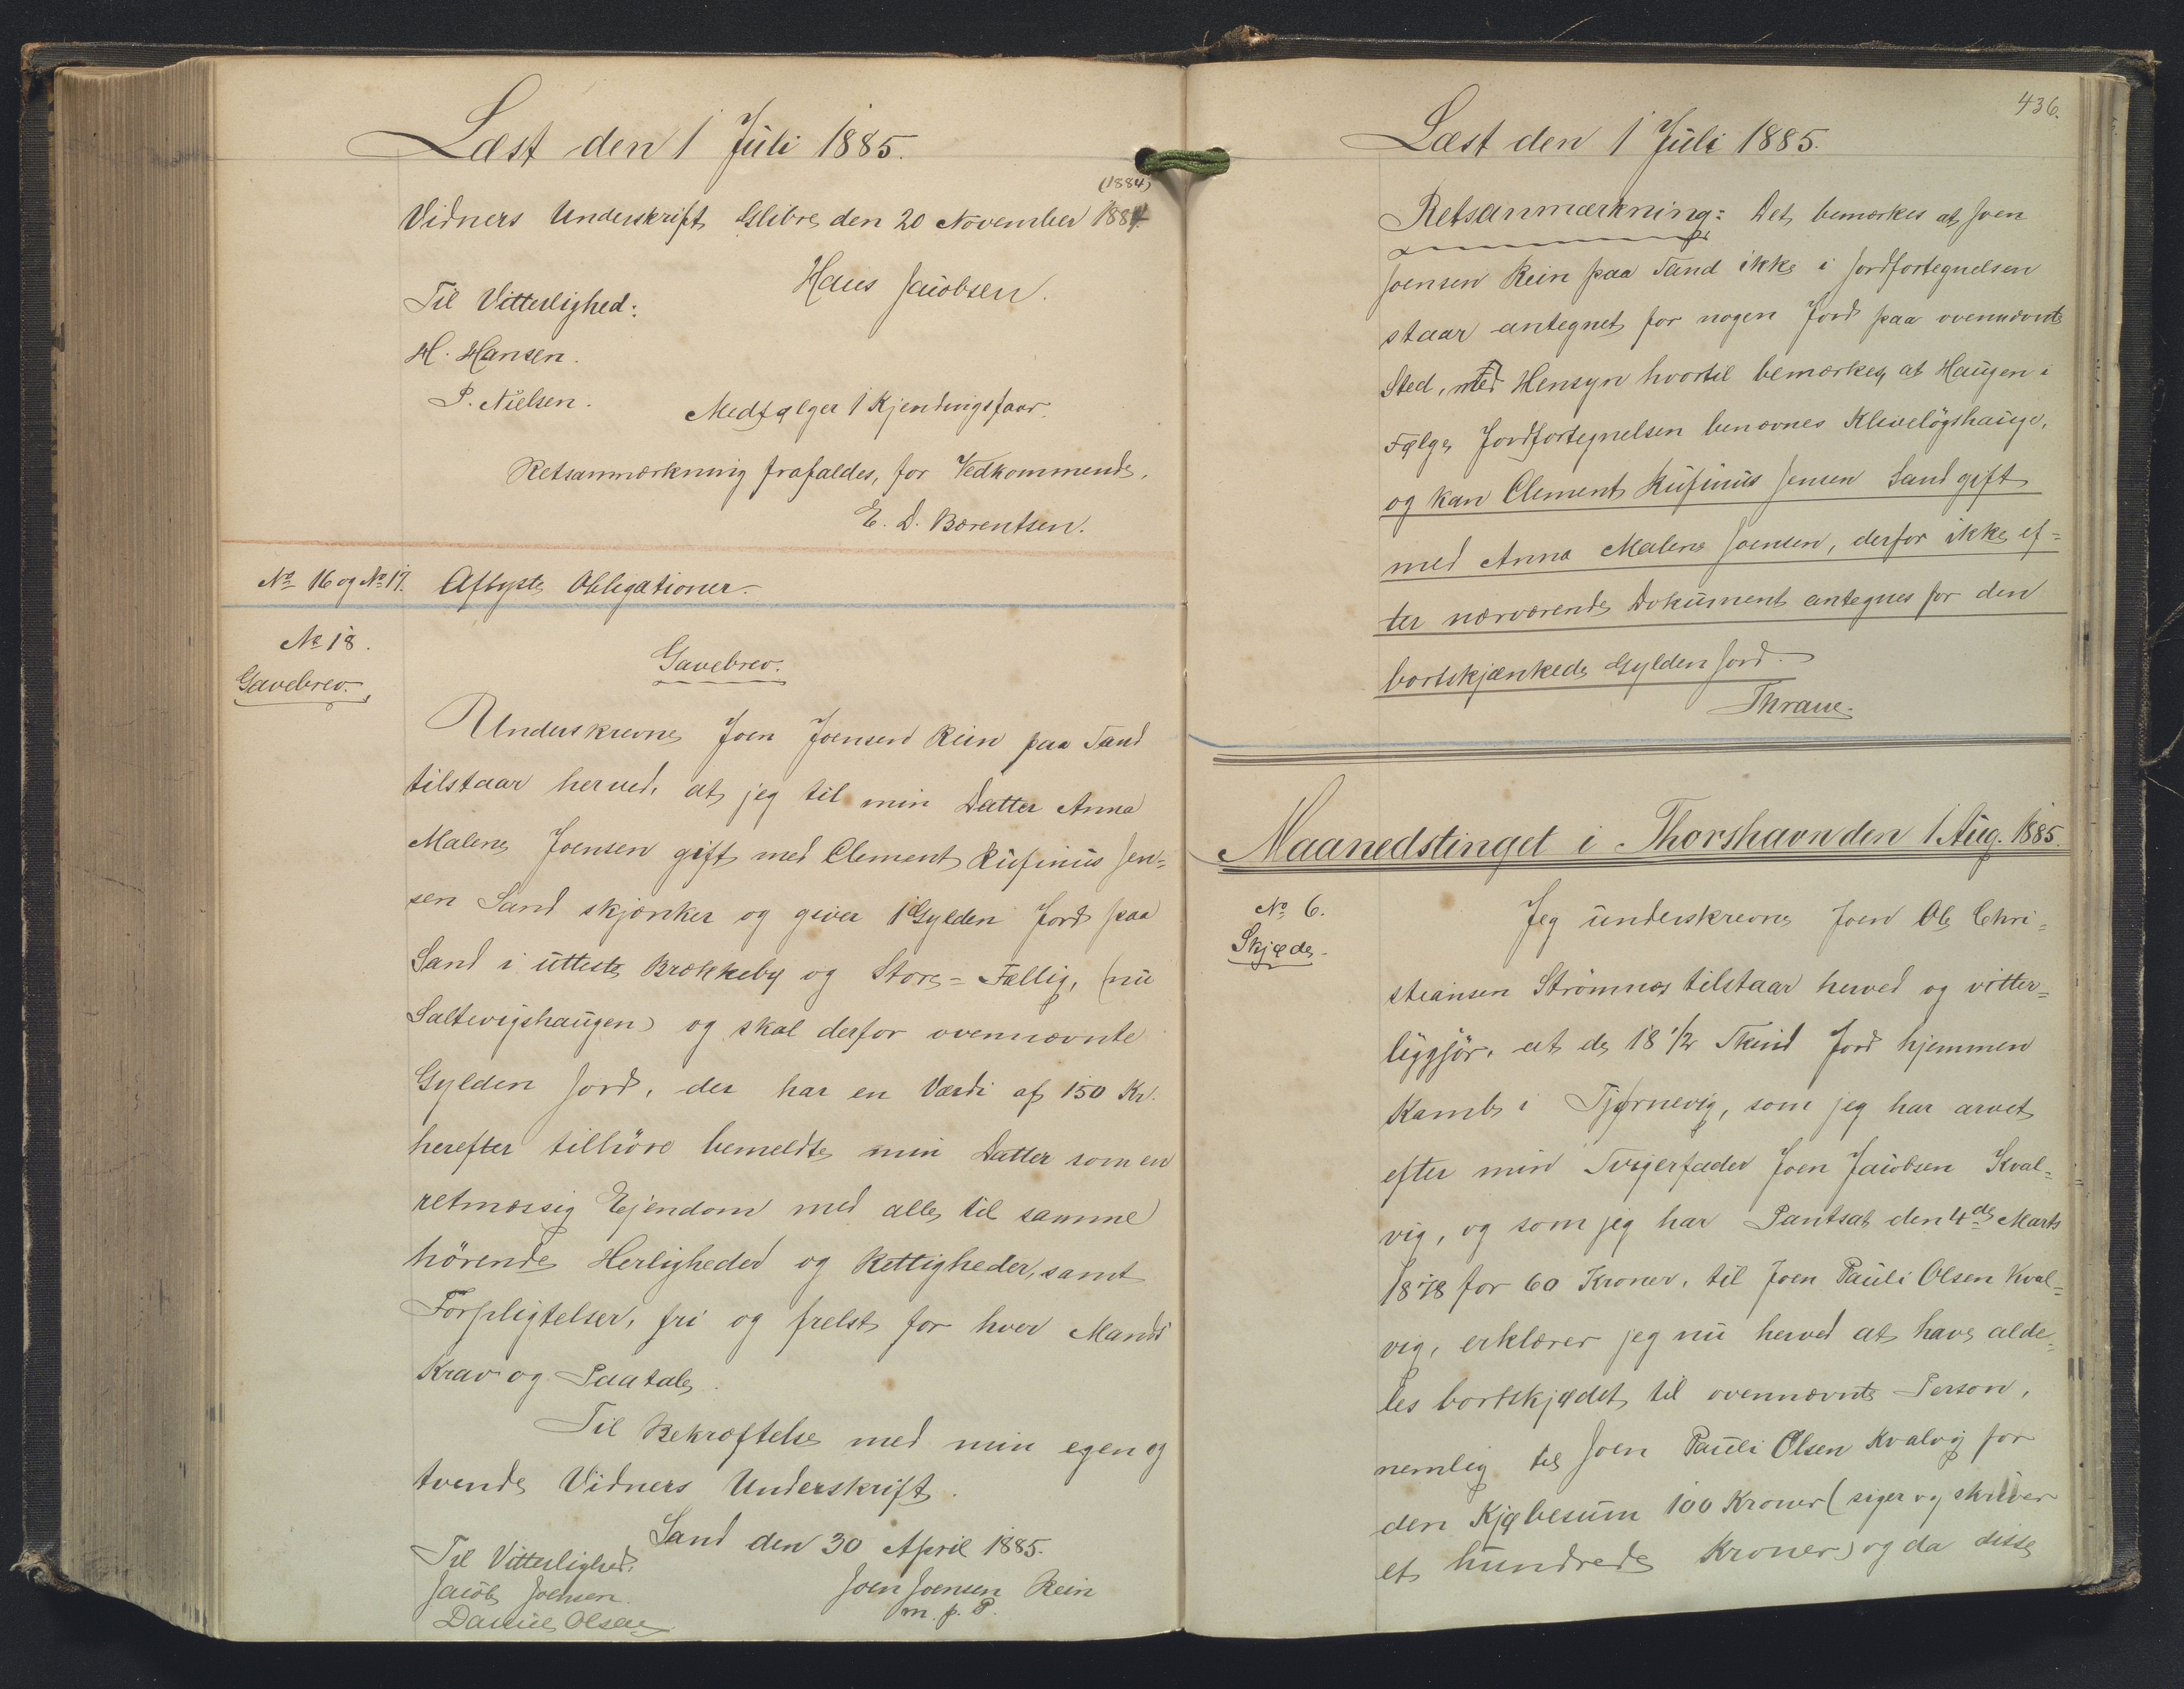 Læst den 1 Juli 1885.
(1884)
Vidners Underskrift Glibre den 20 November 1884
Hans Jacobsen.
Til Vitterlighed:
H. Hansen.
P. Nielsen.
Medfølger 1 Kjendingsfaar.
Retsanmærkning frafaldes, for Vedkommende.
E. D. Bærentsen.
No 16 og No 17. Aflyste Obligationer.
No 18.
Gavebrev.
Gavebrev.
Underskrevne Joen Joensen Rein paa Sand
tilstaar herved, at jeg til min Datter Anna
Malene Joensen gift med Clement Rufinus Jen=
sen Sand skjænker og giver 1 Gylden Jord paa
Sand i utteste Brekkeby og Store=Fællig, (nu
Saltevigshaugen) og skal derfor ovennævnte
Gylden Jord, der har en Værdi af 150 Kr.
herefter tilhøre bemeldte min Datter som en
retmæssig Ejendom med alle til samme
hörende Herligheder og Rettigheder, samt
Forpligtelser, fri og frelst for hver Mands
Krav og Paatale.
Til Bekræftelse med min egen og
tvende Vidners Underskrift.
Sand den 30 April 1885.
Til Vitterlighed,
Jacob Joensen.
Joen Joensen Rein
m. p. P.
Daniel Olsen
436.
Læst den 1 Juli 1885.
Retsanmærkning: Det bemærkes at Joen
Joensen Rein paa Sand ikke i Jordfortegnelsen
staar antegnet for nogen Jord paa ovennævnte
Sted, med Hensyn hvortil bemærkes, at Haugen i
Følge Jordfortegnelsen benævnes Kliveløgshauge,
og kan Clement Rufinus Jensen Sand gift
med Anna Malene Joensen, derfor ikke ef=
ter nærværende Dokument antegnes for den
bortskjænkede Gylden Jord.
Thrane.
Maanedstinget i Thorshavn den 1 Aug. 1885.
No 6.
Skjøde.
Jeg underskrevne Joen Ole Chri=
stiansen Strömnæs tilstaar herved og vitter=
liggjör, at de 18 1/2 Skind Jord hjemmen
Kambe i Tjørnevig, som jeg har arvet
efter min Svigerfader Joen Jacobsen Kval=
vig, og som jeg har Pantsat den 4de Marts
1878 for 60 Kroner, til Joen Pauli Olsen Kval=
vig, erklærer jeg nu herved at have alde=
les bortskjødet til ovennævnte Person,
nemlig til Joen Pauli Olsen Kvalvig for
den Kjøbesum 100 Kroner (siger og skriver
et hundrede Kroner) og da disse